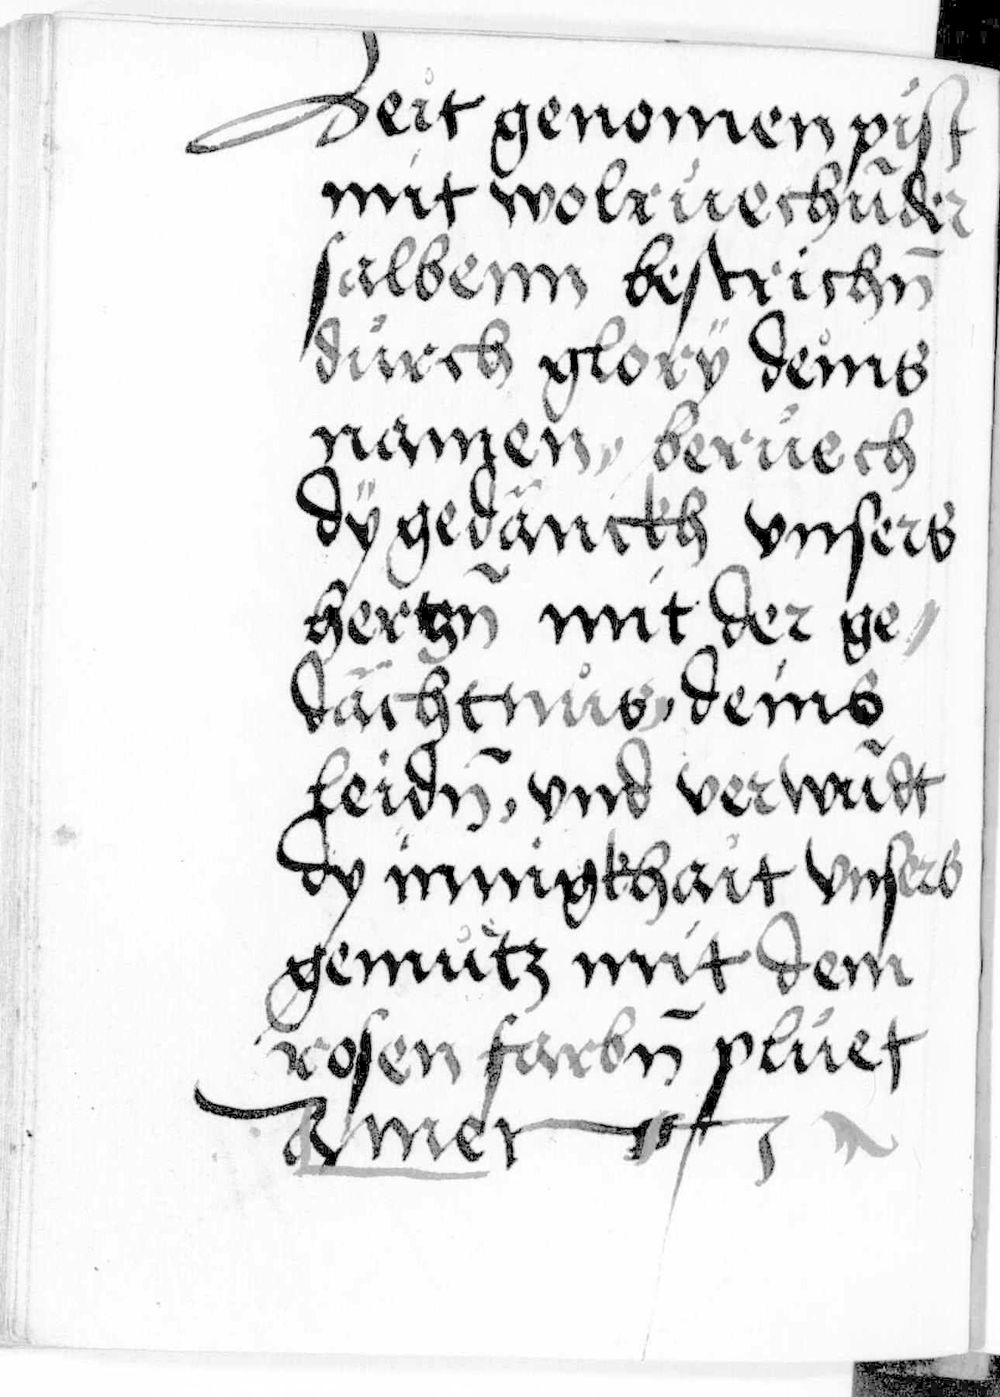 deit genomen pist
mit wolruechūder
salbenn bestrichn̄
durch glorÿ deins
namen, beruech
dÿ gedänckh vnsers
hertzn̄ mit der ge/
dächtnus, deins
leidn̄, vnd verwūdt
dy innigkhait vnsers
gemutz mit dem
rosen farbn̄ pluet
Amen